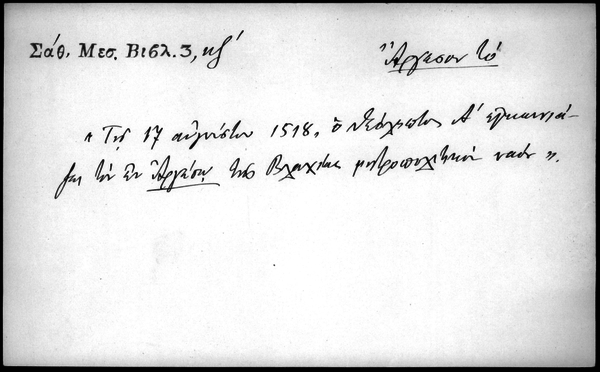 Σάθ. Μεσ. Βιβλ. 3, κζ΄
Ἄργεσον τό
« Τῇ 17 αὐγούστου 1518, ὁ Θεόληπτος Α΄ ἐγκαινιά-
ζει τὸν ἐν Ἀργέσῃ τῆς Βλαχίας μητροπολιτικὸν ναόν ».